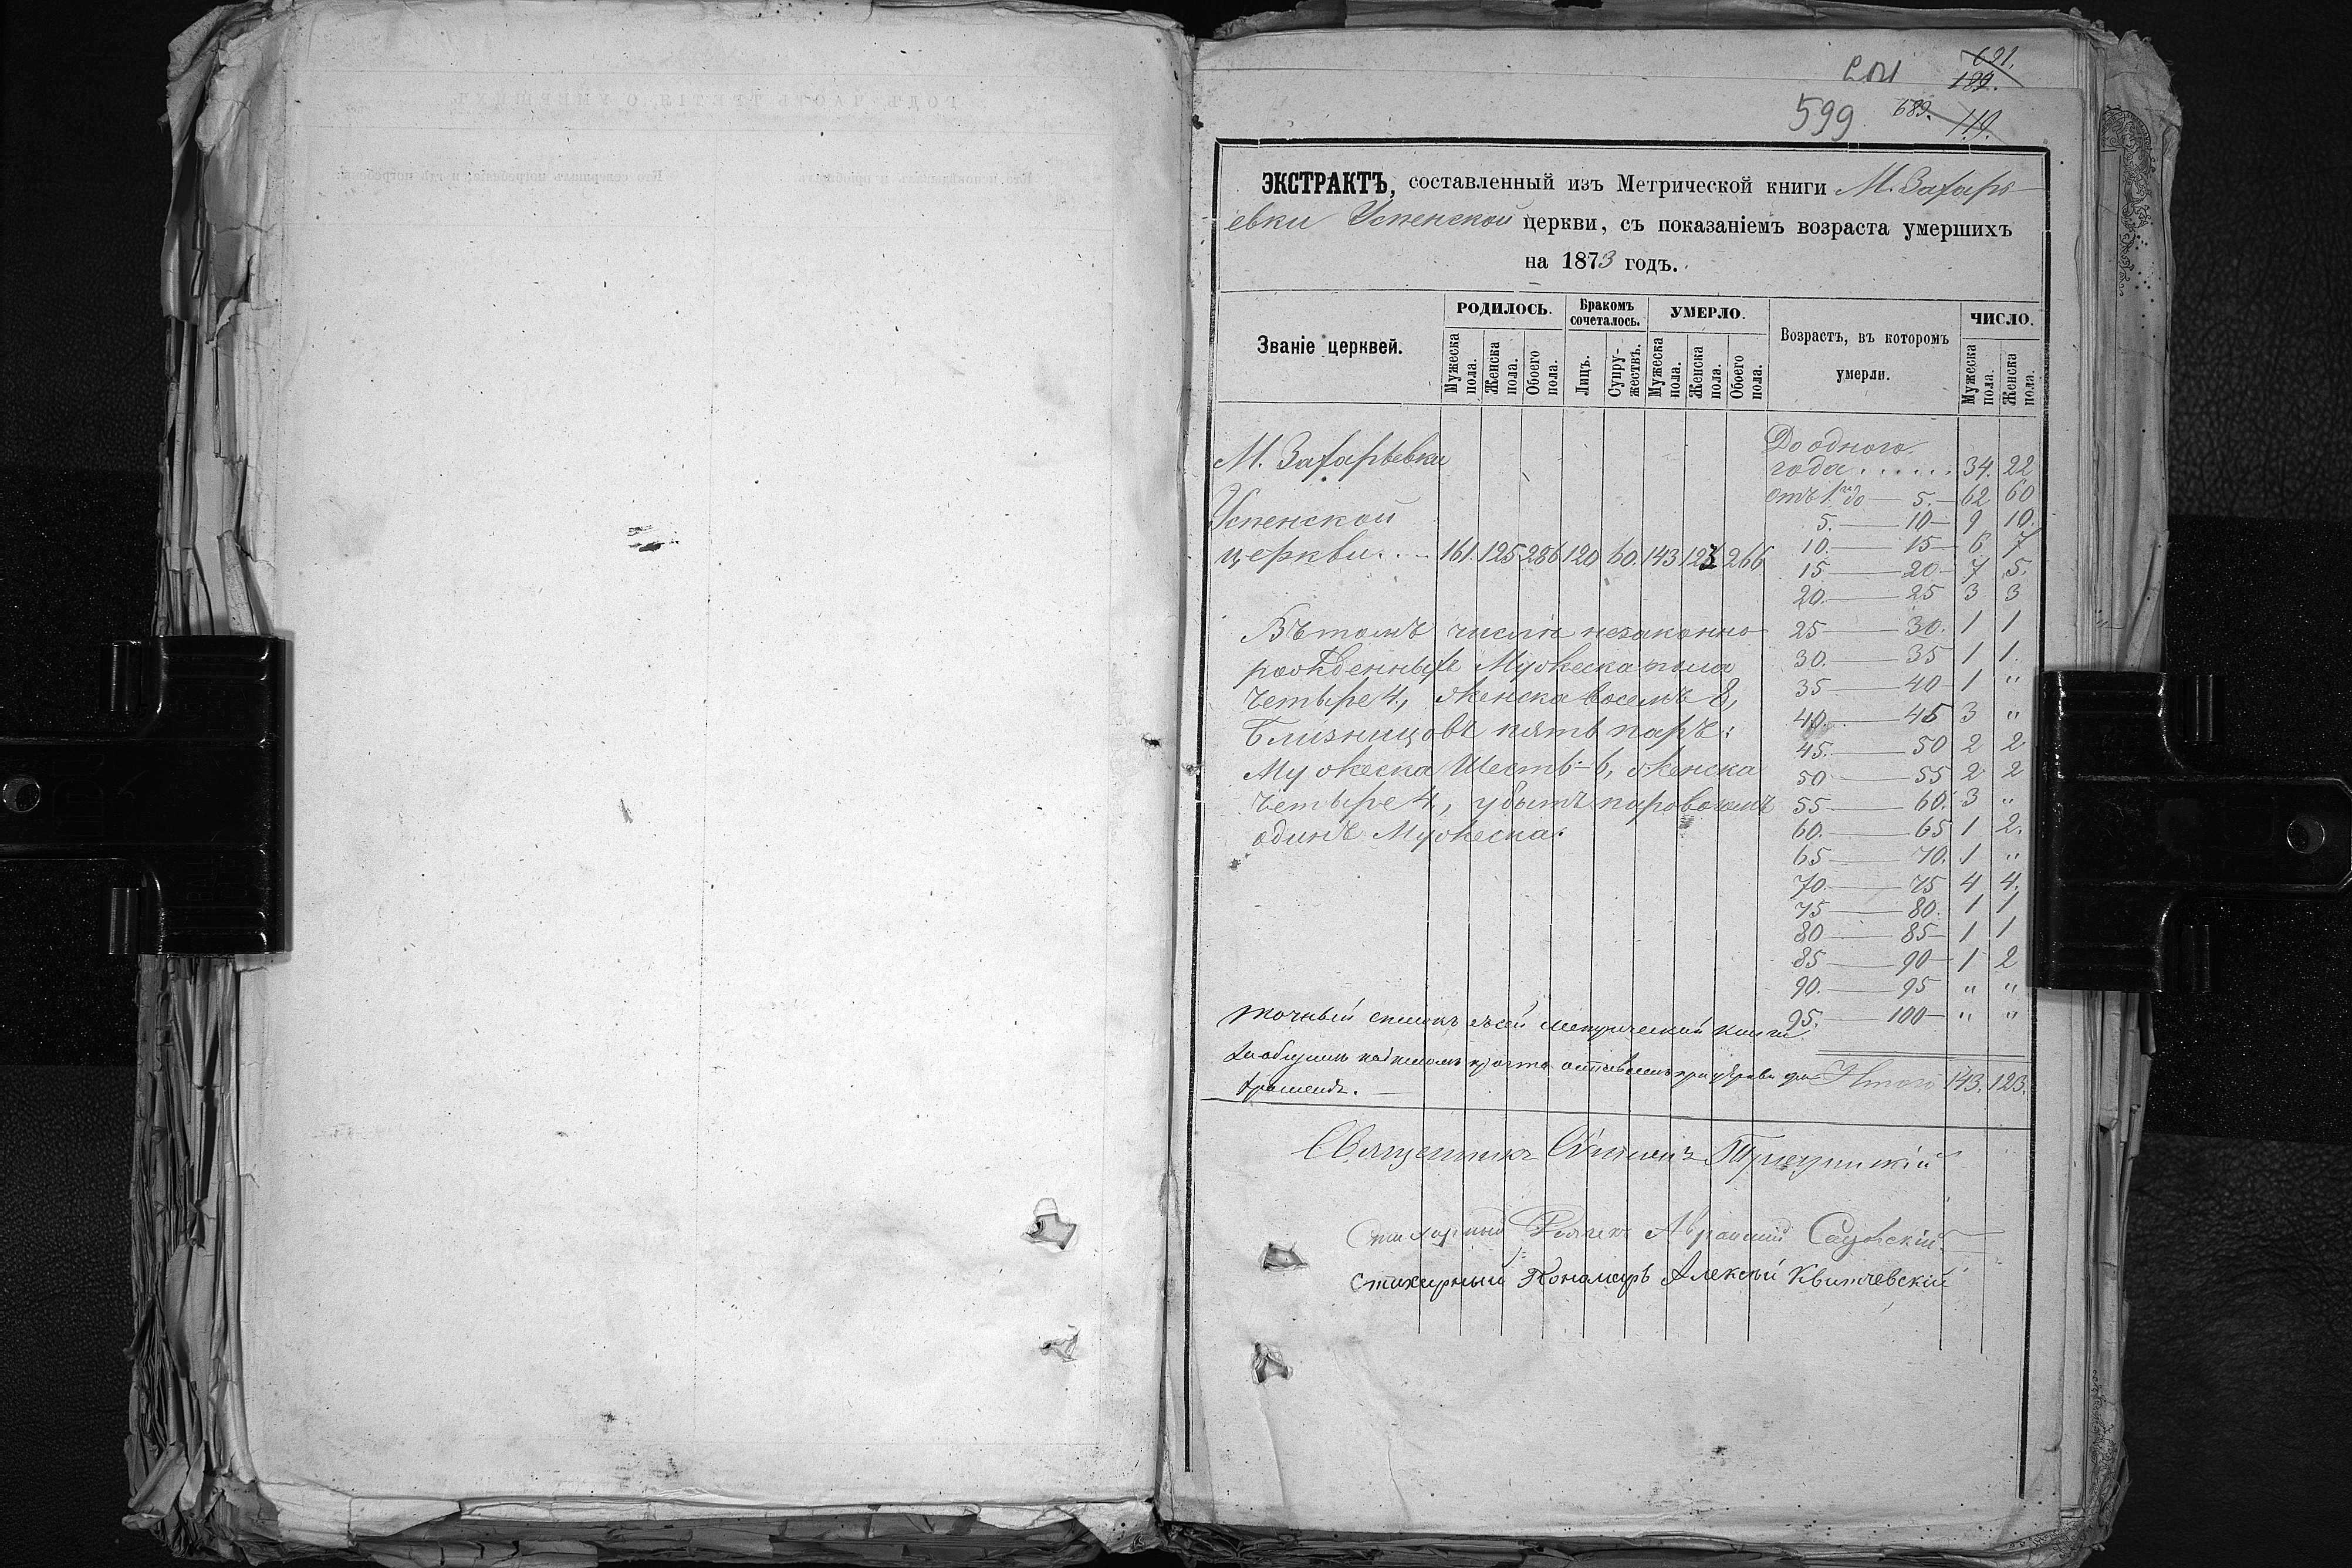 691.
189.
599 689. 119.
ЭКСТРАКТЪ, составленный изъ Метрической книги М. Захарь-
евки Успенской церкви, съ показаніемъ возраста умершихъ
на 1873 годъ.
Званіе церквей.
РОДИЛОСЬ.
Мужеска пола.
Женска пола.
Обоего пола.
Бракомъ сочеталось.
Лицъ.
Супру-жествъ.
УМЕРЛО.
Мужеска пола.
Женска пола.
Обоего пола.
Возрастъ, въ которомъ
умерли.
ЧИСЛО.
Мужеска пола.
Женска пола.
М. Захарьевки
Успенской
церкви.... 161. 125 286 120 60. 143 123 266
Въ томъ числѣ незаконно
рожденныхъ Мужеска пола
четыре 4, женска восемь 8,
Близнецовъ пять паръ:
Мужеска шесть - 6, женска
четыре 4, убитъ паровозомъ
одинъ Мужеска.
До одного
года...... 34. 22
отъ 1го до — 5. — 62 60
5. — 10 — 9 10.
10. — 15 — 6 7
15 — 20 — 7 5.
20. — 25 3 3
25 — 30. 1 1
30. — 35 1 1.
35 — 40 — 1 "
40. — 45 3 "
45. — 50 2 2
50 — 55 2 2
55 — 60. 3 "
60. — 65 1 2.
65 — 70. 1 "
70. — 75 4 4.
75 — 80. 1 1
80 — 85 — 1 1
85 — 90 — 1 2
90. — 95 " "
95. — 100 — " "
Итого 143. 123.
Точный списокъ съ сей метрической книги
Священникъ
Стихарный Авраамій
Стихарный Пономарь Алексѣй Квитчевскій